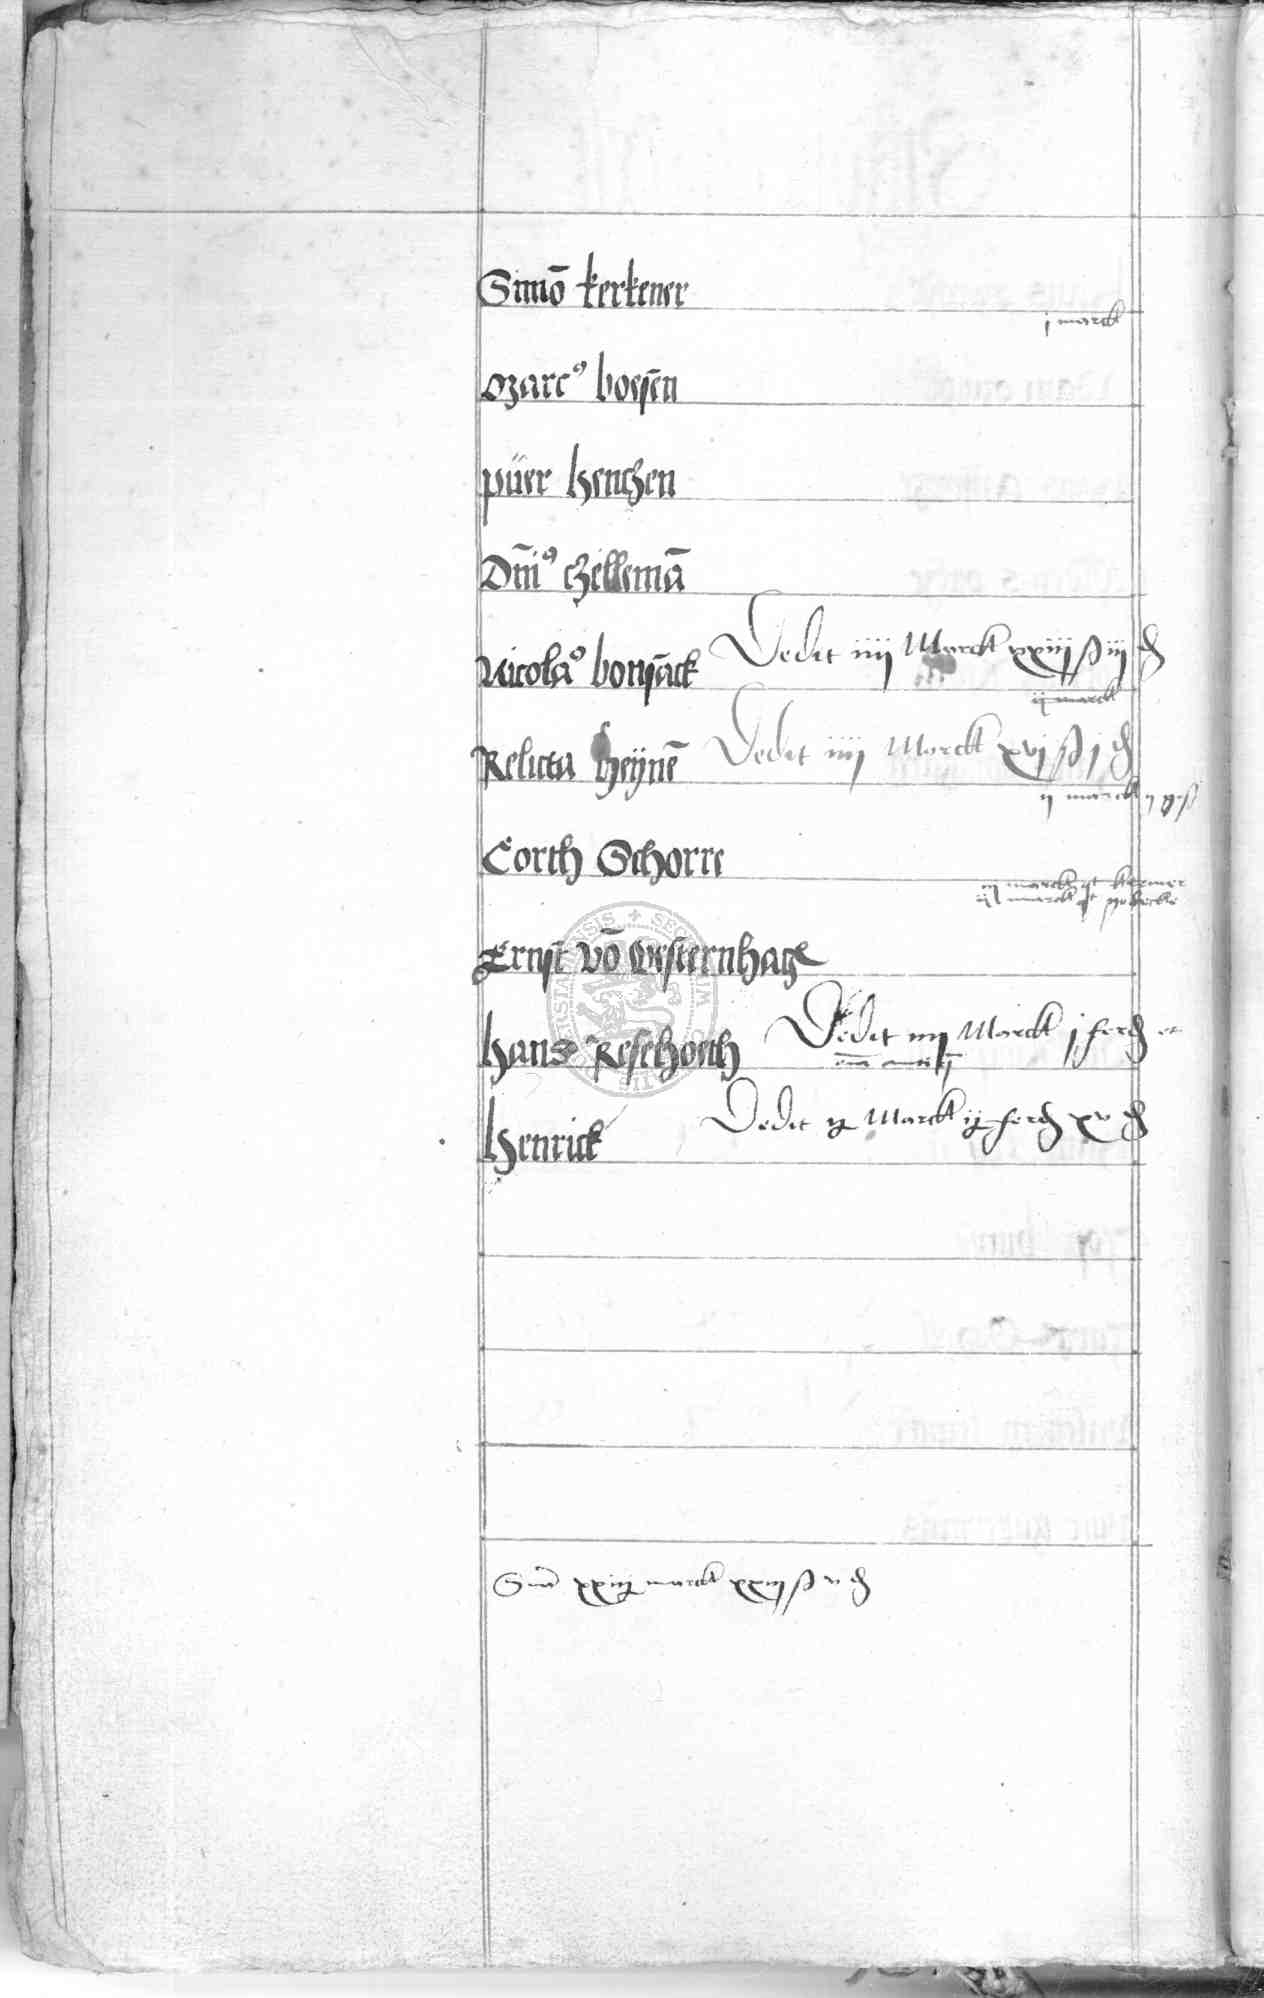 Simō kerkener
j marck
Marcꝰ boesen
püer henczen
Dm̄iꝰ czellemā
Nicolaꝰ bonsack Dedit iiij Marck xxiij ß iij ₰
ij marck
Relicta heÿnē Dedit iiij Marck xvj ß j ₰
ij marck
Corth Schorre
iij marck
ij marck
Ernst vō westernhagē
Hans Reschorth Dedit iiij Marck j ferd et
Henrick Dedit ij Marck ij ferd xv ₰
Sūa xxiij marck xxiij ß v ₰